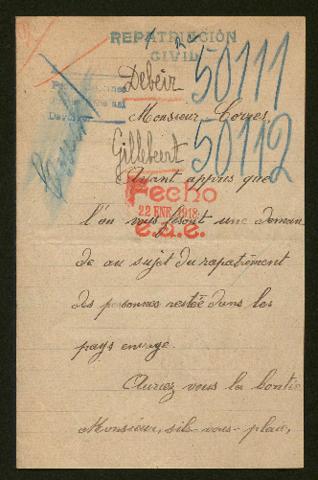 REPATRIACIÓN
CIVIL
50111
Debeir
Monsieur
50112
Gillebert
Ayant appris que
Fecho
22 ENE. 1918
l'on vous faisait une deman
de au sujet du rapatriement
des personnes restée dans les
pays envayé.
Auriez vous la bonté
Monsieur, sils-vous-plait,